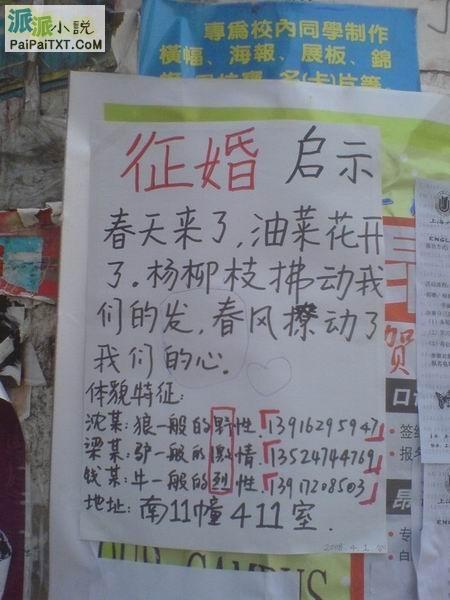 派派小说
PaiPaiTXT.Com
專為校內同學制作
橫幅、海報、展板、錦
名(卡)片等
征婚 启示
春天来了,油菜花开
了.杨柳枝拂动我
们的发,春风撩动了
我们的心.
体貌特征:
沈某:狼一般的野性.「13916295947」
梁某:驴一般的激情「13524744769」
钱某:牛一般的烈性「13917208503」
地址:南11幢411室.
2008.4.1
贺
口
签
报名
昂
专
自
上海
ENGL
OUR CAMPUS